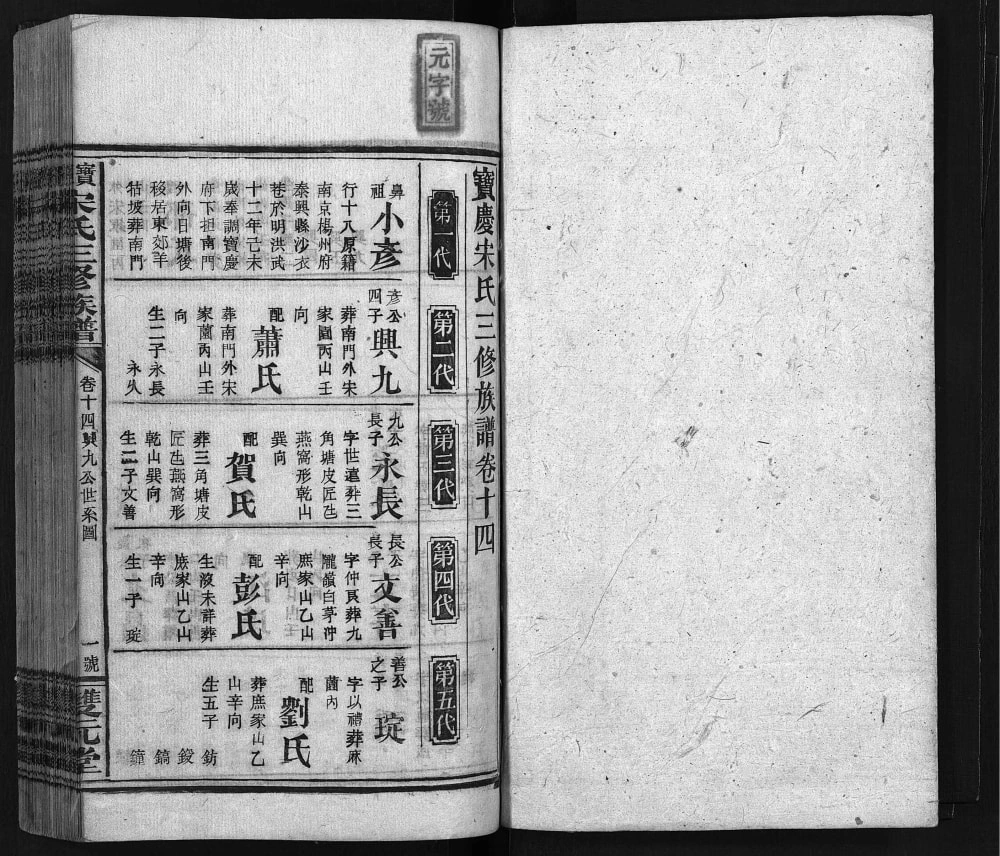 元字號
寶慶宋氏三修族譜卷十四
第一代
第二代
第三代
第四代
第五代
鼻祖
小彥
行十八原籍
南京楊州府
泰興縣沙衣
巷於明洪武
十二年己未
歲奉調寶慶
府下担南門
外向日塘後
移居東郊羊
牯坡葬南門
彥公四子
興九
葬南門外宋
家園丙山壬
向
配
蕭氏
葬南門外宋
家園丙山壬
向
生二子永長
永久
九公長子
永長
字世遠葬三
角塘皮匠屯
燕窩形乾山
巽向
配
賀氏
葬三角塘皮
匠屯燕窩形
乾山巽向
生二子文善
長公長子
文善
字仲良葬九
隴嶺白茅沖
庶家山乙山
辛向
配
彭氏
生沒未詳葬
庶家山乙山
辛向
生一子 琔
善公之子
琔
字以禮葬麻
園內
配
劉氏
葬庶家山乙
山辛向
生五子 鈁
鍛
鎬
鐘
寶宋氏三修族譜
卷十四興九公世系圖
一號
雙元堂